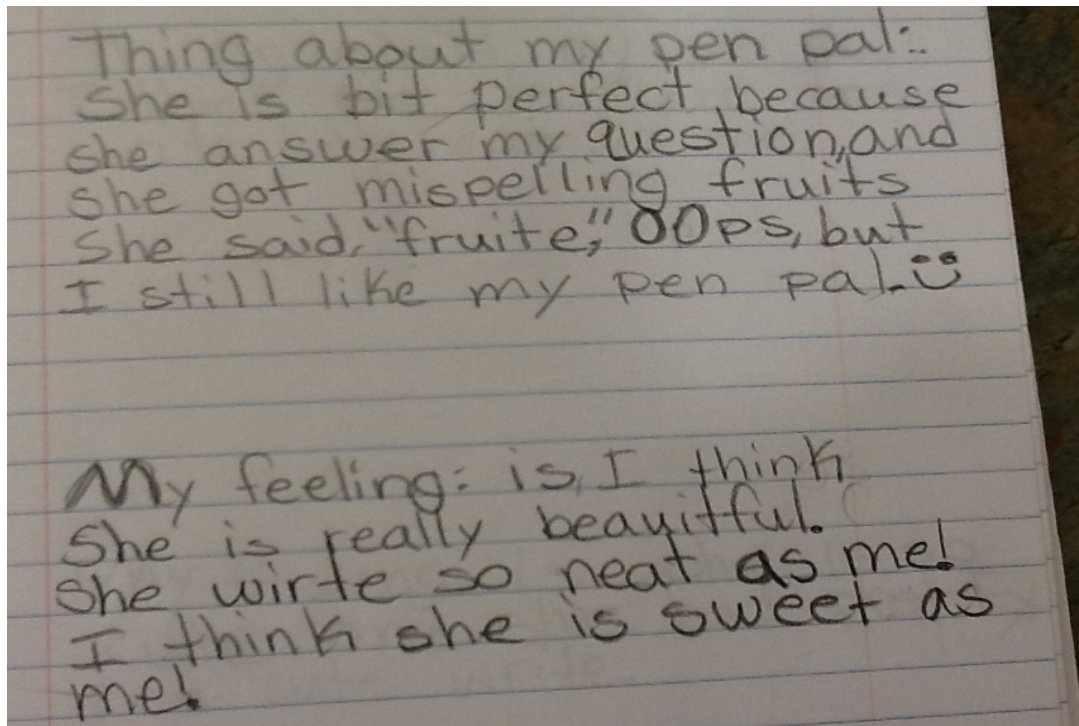 Thing about my pen pal:.
She is bit perfect, because
she answer my question, and
she got mispelling fruits
She said, "fruite," OOps, but
I still like my pen pal. :)
My feeling: is, I think
She is really beayitful.
She wirte so neat as me!
I think she is sweet as
me!